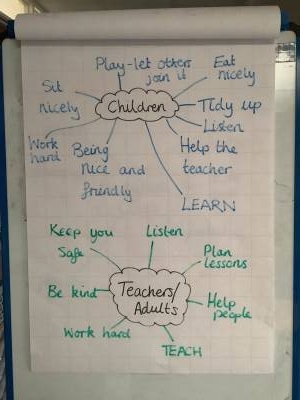 Play-let others
join it
Eat
nicely
Sit
nicely
Children
Tidy up
Listen
Work
hard
Being
nice and
friendly
Help the
teacher
LEARN
Keep you
safe
Listen
Plan
lessons
Be kind
Teachers/
Adults
Help
people
Work hard
TEACH